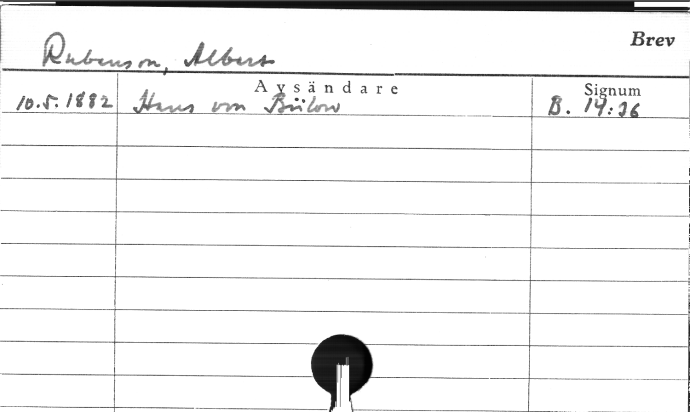 Brev
Rubenson, Albert
Avsändare Signum
10.5.1882 Hans von Bülow B. 14:36